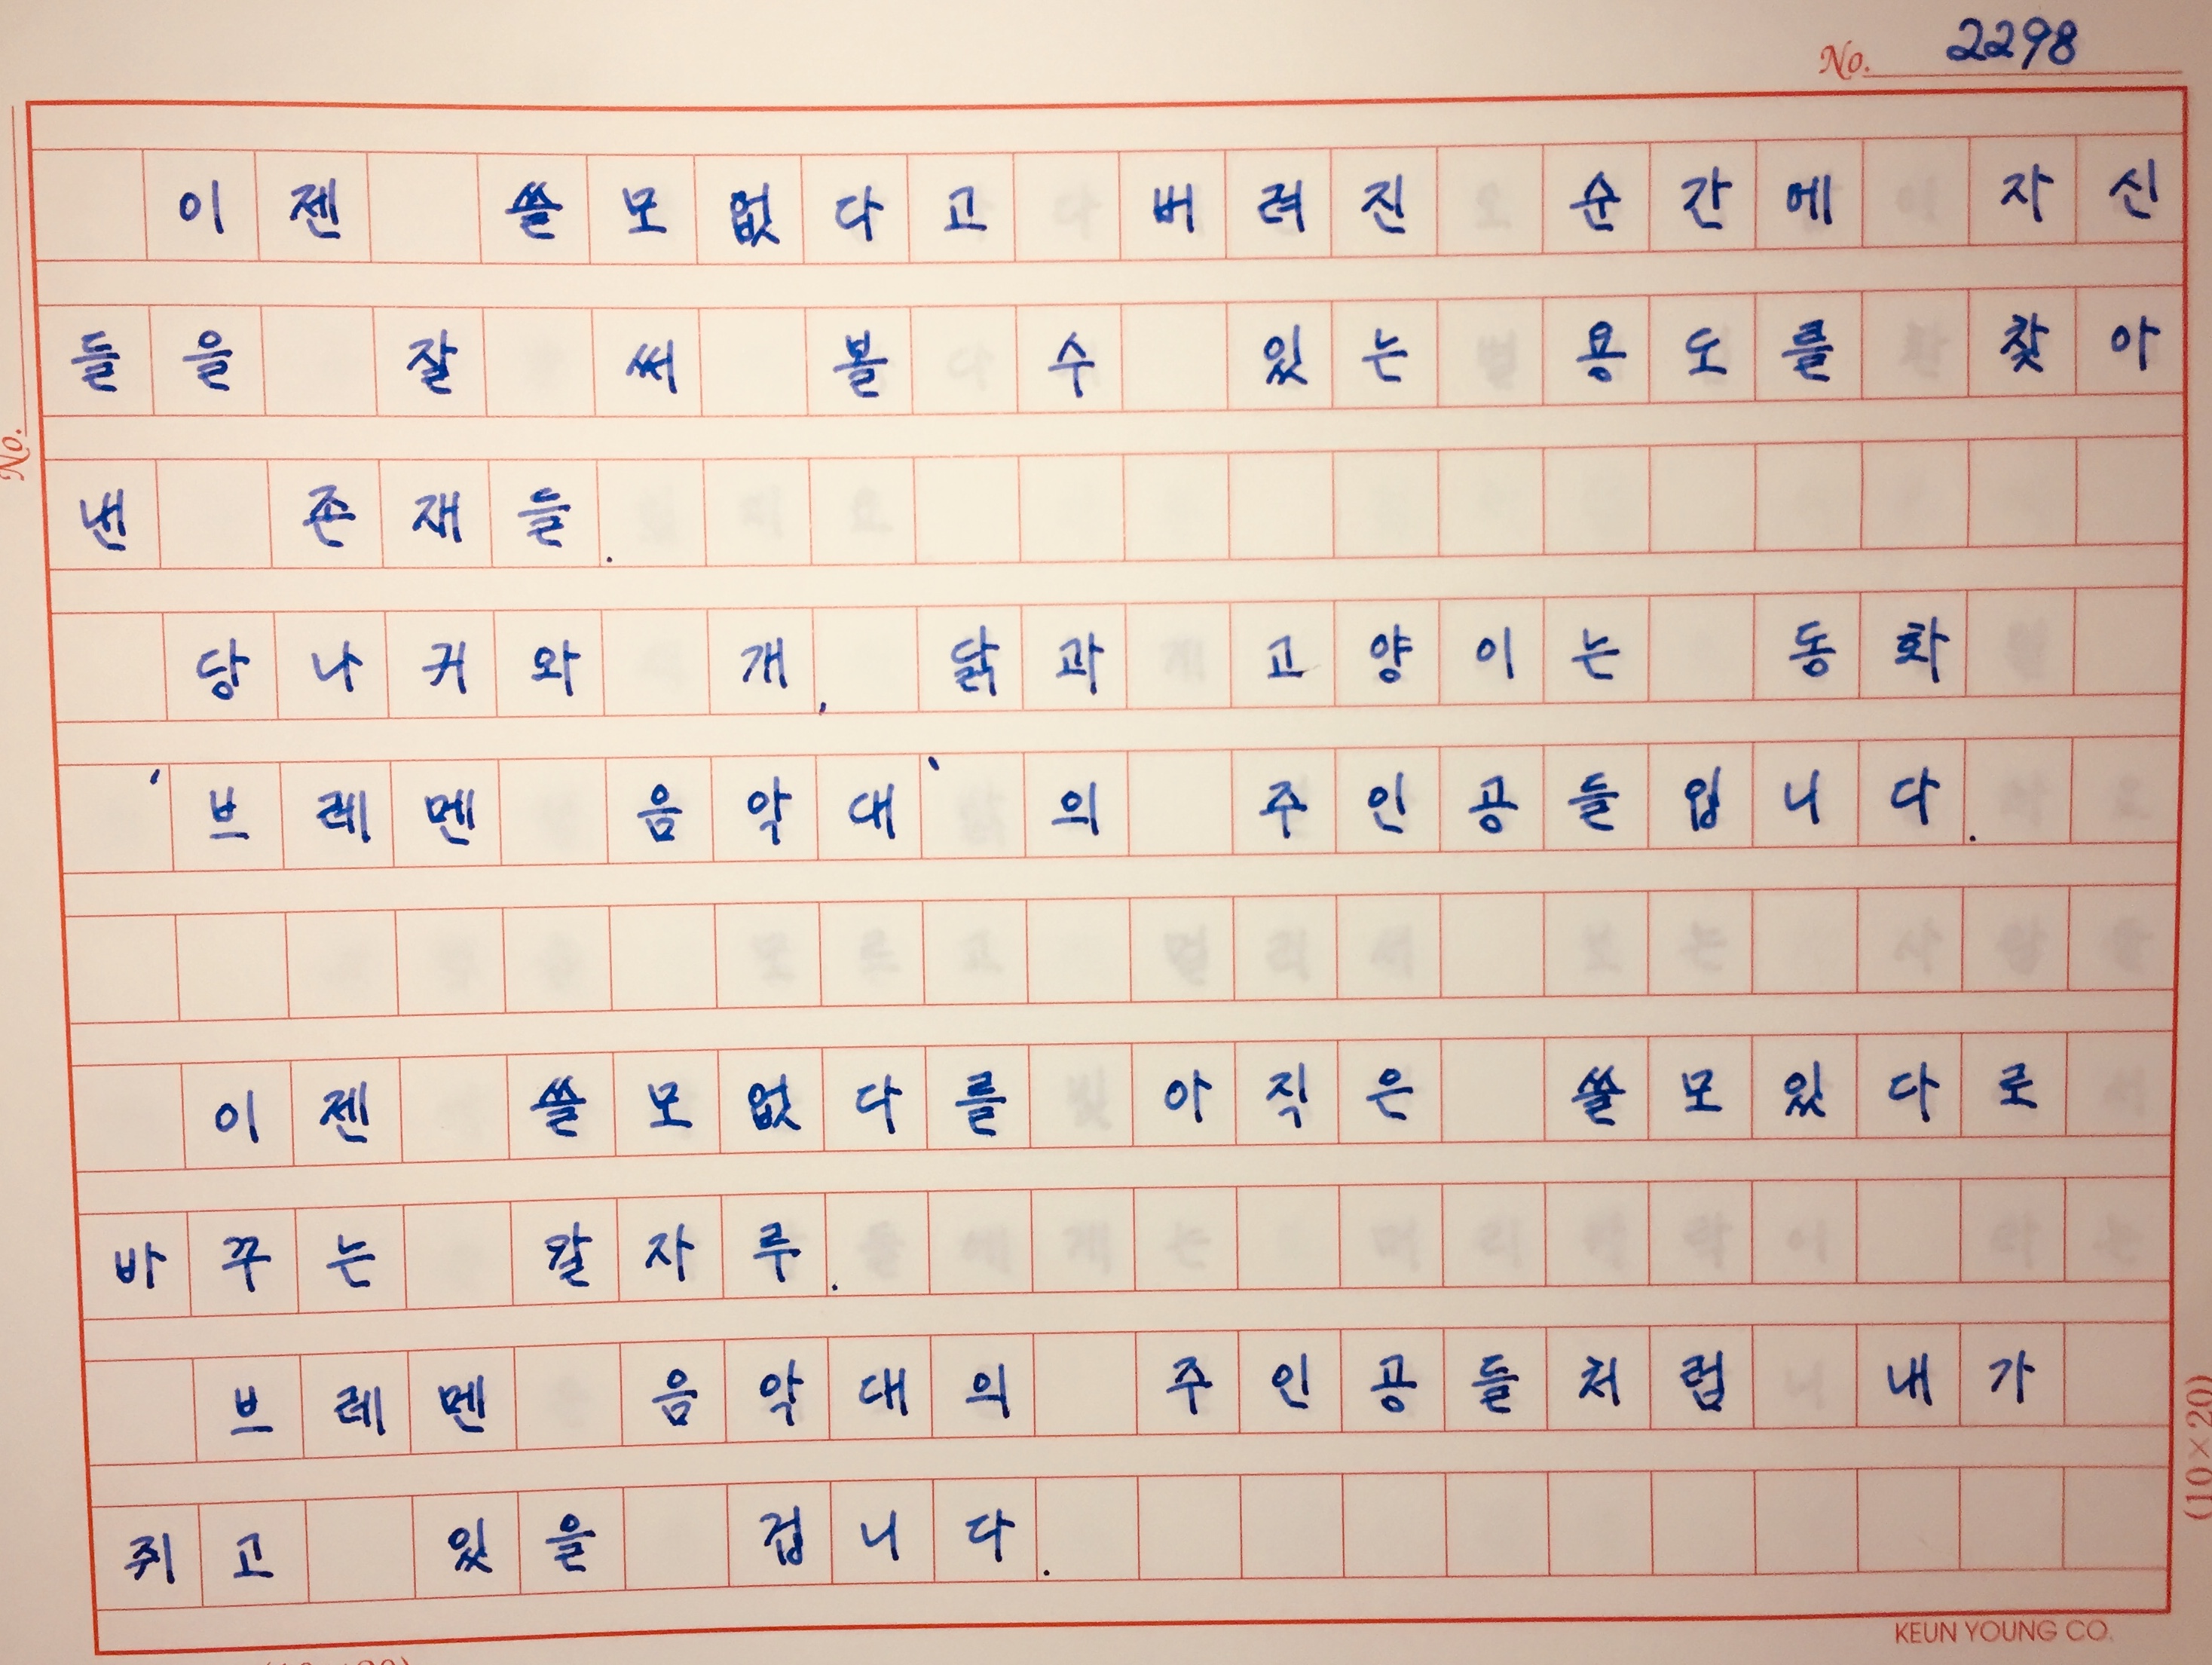 No. 2298
이젠 쓸모없다고 버려진 순간에 자신
들을 잘 써 볼 수 있는 용도를 찾아
낸 존재들.
당나귀와 개, 닭과 고양이는 동화
'브레멘 음악대'의 주인공들입니다.
이젠 쓸모없다를 아직은 쓸모있다로
바꾸는 칼자루.
브레멘 음악대의 주인공들처럼 내가
쥐고 있을 겁니다.
No.
(10×20)
KEUN YOUNG CO.